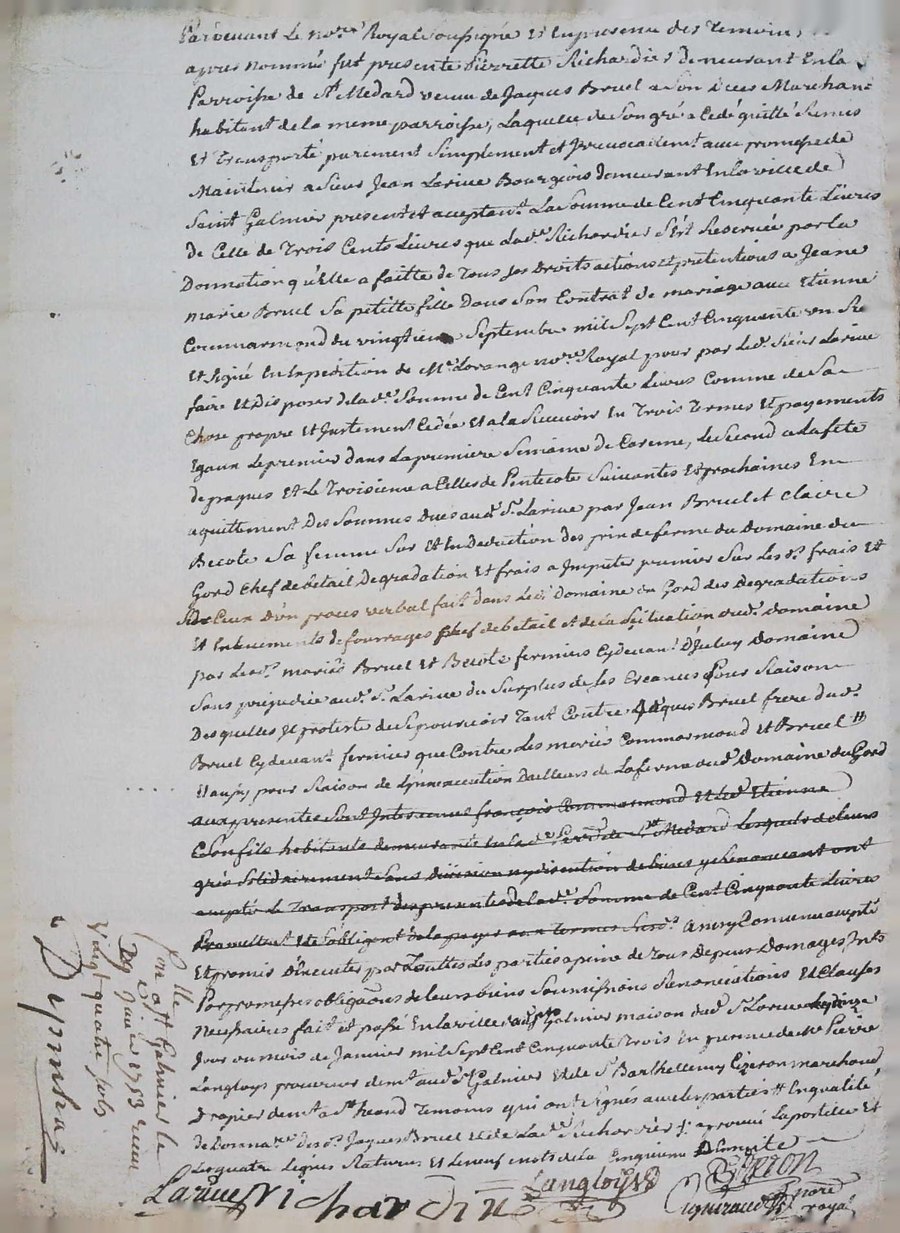 Pardevant Le no.re Royal Soussigné Et En presence des Temoins
apres nommés fut presente Pierrette Richardier demeurant En la
Parroisse de St Medard veuve de Jaques Bruel a Son deces Marchand
habitant de la meme parroisse, Laquelle de Son gré a Cedé quitté Remis
Et Transporté purement Simplement et Jrrevocablemt avec promesse de
Maintenir a Sieur Jean Larive Bourgeois demeurant En la ville de
Saint Galmier present et aceptant La Somme de Cent Cinquante Livres
de Celle de Trois Cents Livres que lad.e Richardier S'est Reservée par la
Donnation qu'Elle a faitte de Tous Ses Droits actions et pretentions a Jeane
marie Bruel Sa petitte fille Dans Son Contrat de mariage avec Etienne
Commarmond du vingtieme Septembre mil Sept Cent Cinquante un
Et Signé En Expedition de Me Lorange no.re Royal pour par led. Sieur Larive
faire Et Disposer de lad.e Somme de Cent Cinquante Livres Comme de Sa
Chose propre Et Justement Cedée Et a la Recevoir En Trois Termes Et payements
Egaux Le premier dans La premiere Semaine de Careme, Le Second a La fete
de paques Et Le Troisieme a Celles de Pentecote Suivantes Et prochaines En
aquittement Des Sommes Dues aud. Sr Larive par Jean Bruel et Claire
Becote Sa femme Sur Et En Deduction des prix de ferme du Domaine du
Gord Chef de Bétail Degradation Et frais a Imputer premier Sur Les d. frais Et
Sur Ceux D'un proces verbal fait dans Led. Domaine du Gord des Degradations
Et Enlevements de fourrages Chef de betail et de la Situation dud. domaine
par Lesd. mariés Bruel Et Becote fermiers Cydevant D'Iceluy Domaine
Sans prejudice aud. Sr Larive du Surplus de Ses Creances Pour Raison
Des quelles Il proteste de Se pourvoir Tant Contre Jaques Bruel frere dud.
Bruel Cydevant fermier que Contre Les mariés Commarmond Et Bruel
Et aussy pour Raison de L'Innexecution D'ailleurs de La ferme dud. Domaine du Gord
aux presentes Sont Intervenus françois Commarmond Et led. Etienne
Son fils habitants demeurants En la d. Parr.se de St Medard Lesquels de Leurs
grés Solidairement Sans division ny discution de biens y Renonceant ont
accepté Le Transport des presentes de lad.e Somme de Cent Cinquante Livres
Et S'obligent de la payer aux Termes Susd. Ainsy Convenu accepté
Et promis D'Executer par Touttes Les parties a peine de Tous Depens Domages Jnts
Par promesses obligãons de Leurs biens Soumissions Renonciations Et Clauses
Necessaires fait et passé En la ville de St Galmier maison dud. Sr Larive
Jour du mois de Janvier mil Sept Cent Cinquante Trois En presence de Me Pierre
Langloys procureur demt aud. St Galmier Et de Sr Barthellemy Cizeron marchand
Drapier demt a St heand Temoins qui ont Signés avec les parties En qualité
de Jaques Bruel Et de Lad.e Richardier approuvé L'apostille Et
Les quatre Lignes Raturées Et Le neuf mots de la Cinquieme
Larive Richardier Langloys Cizeron
no.re royal
Con.lle a St Galmier le
Janvier 1753 Reçu
Vingt quatre sols